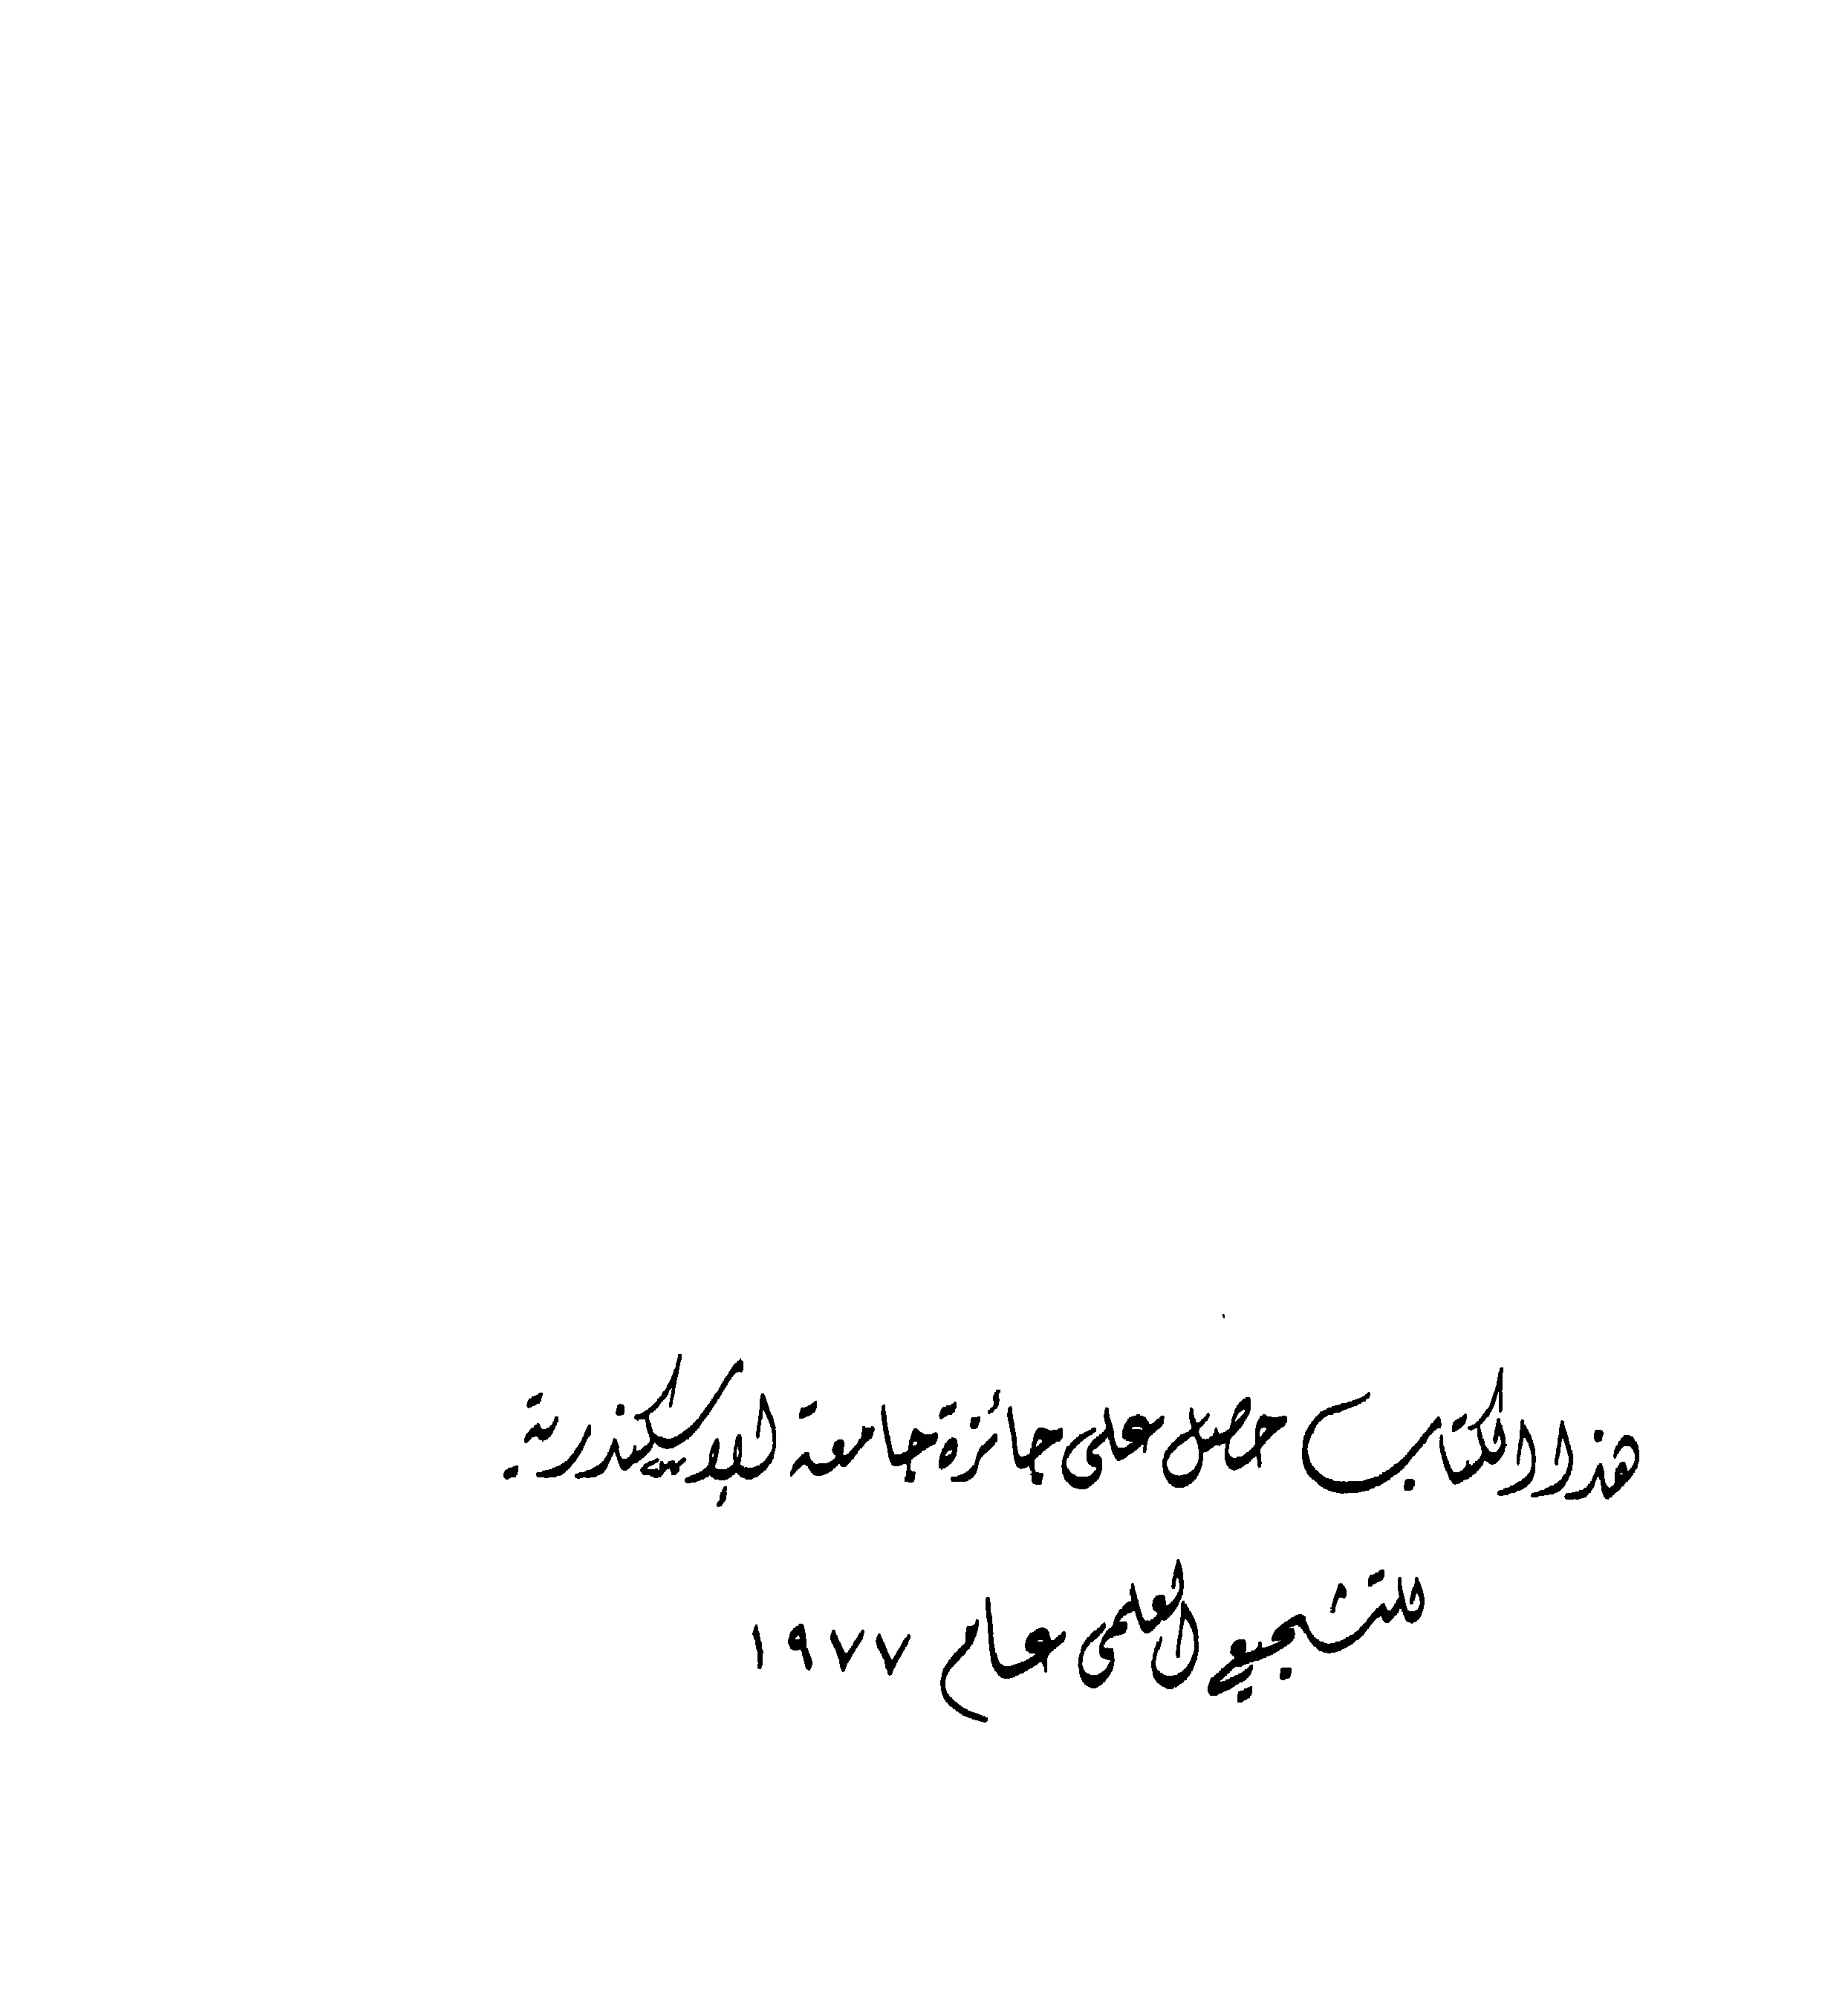 هذا الكتاب حصل على جائزة جامعة الإسكندرية
للتشجيع العلمى عام ١٩٧٧